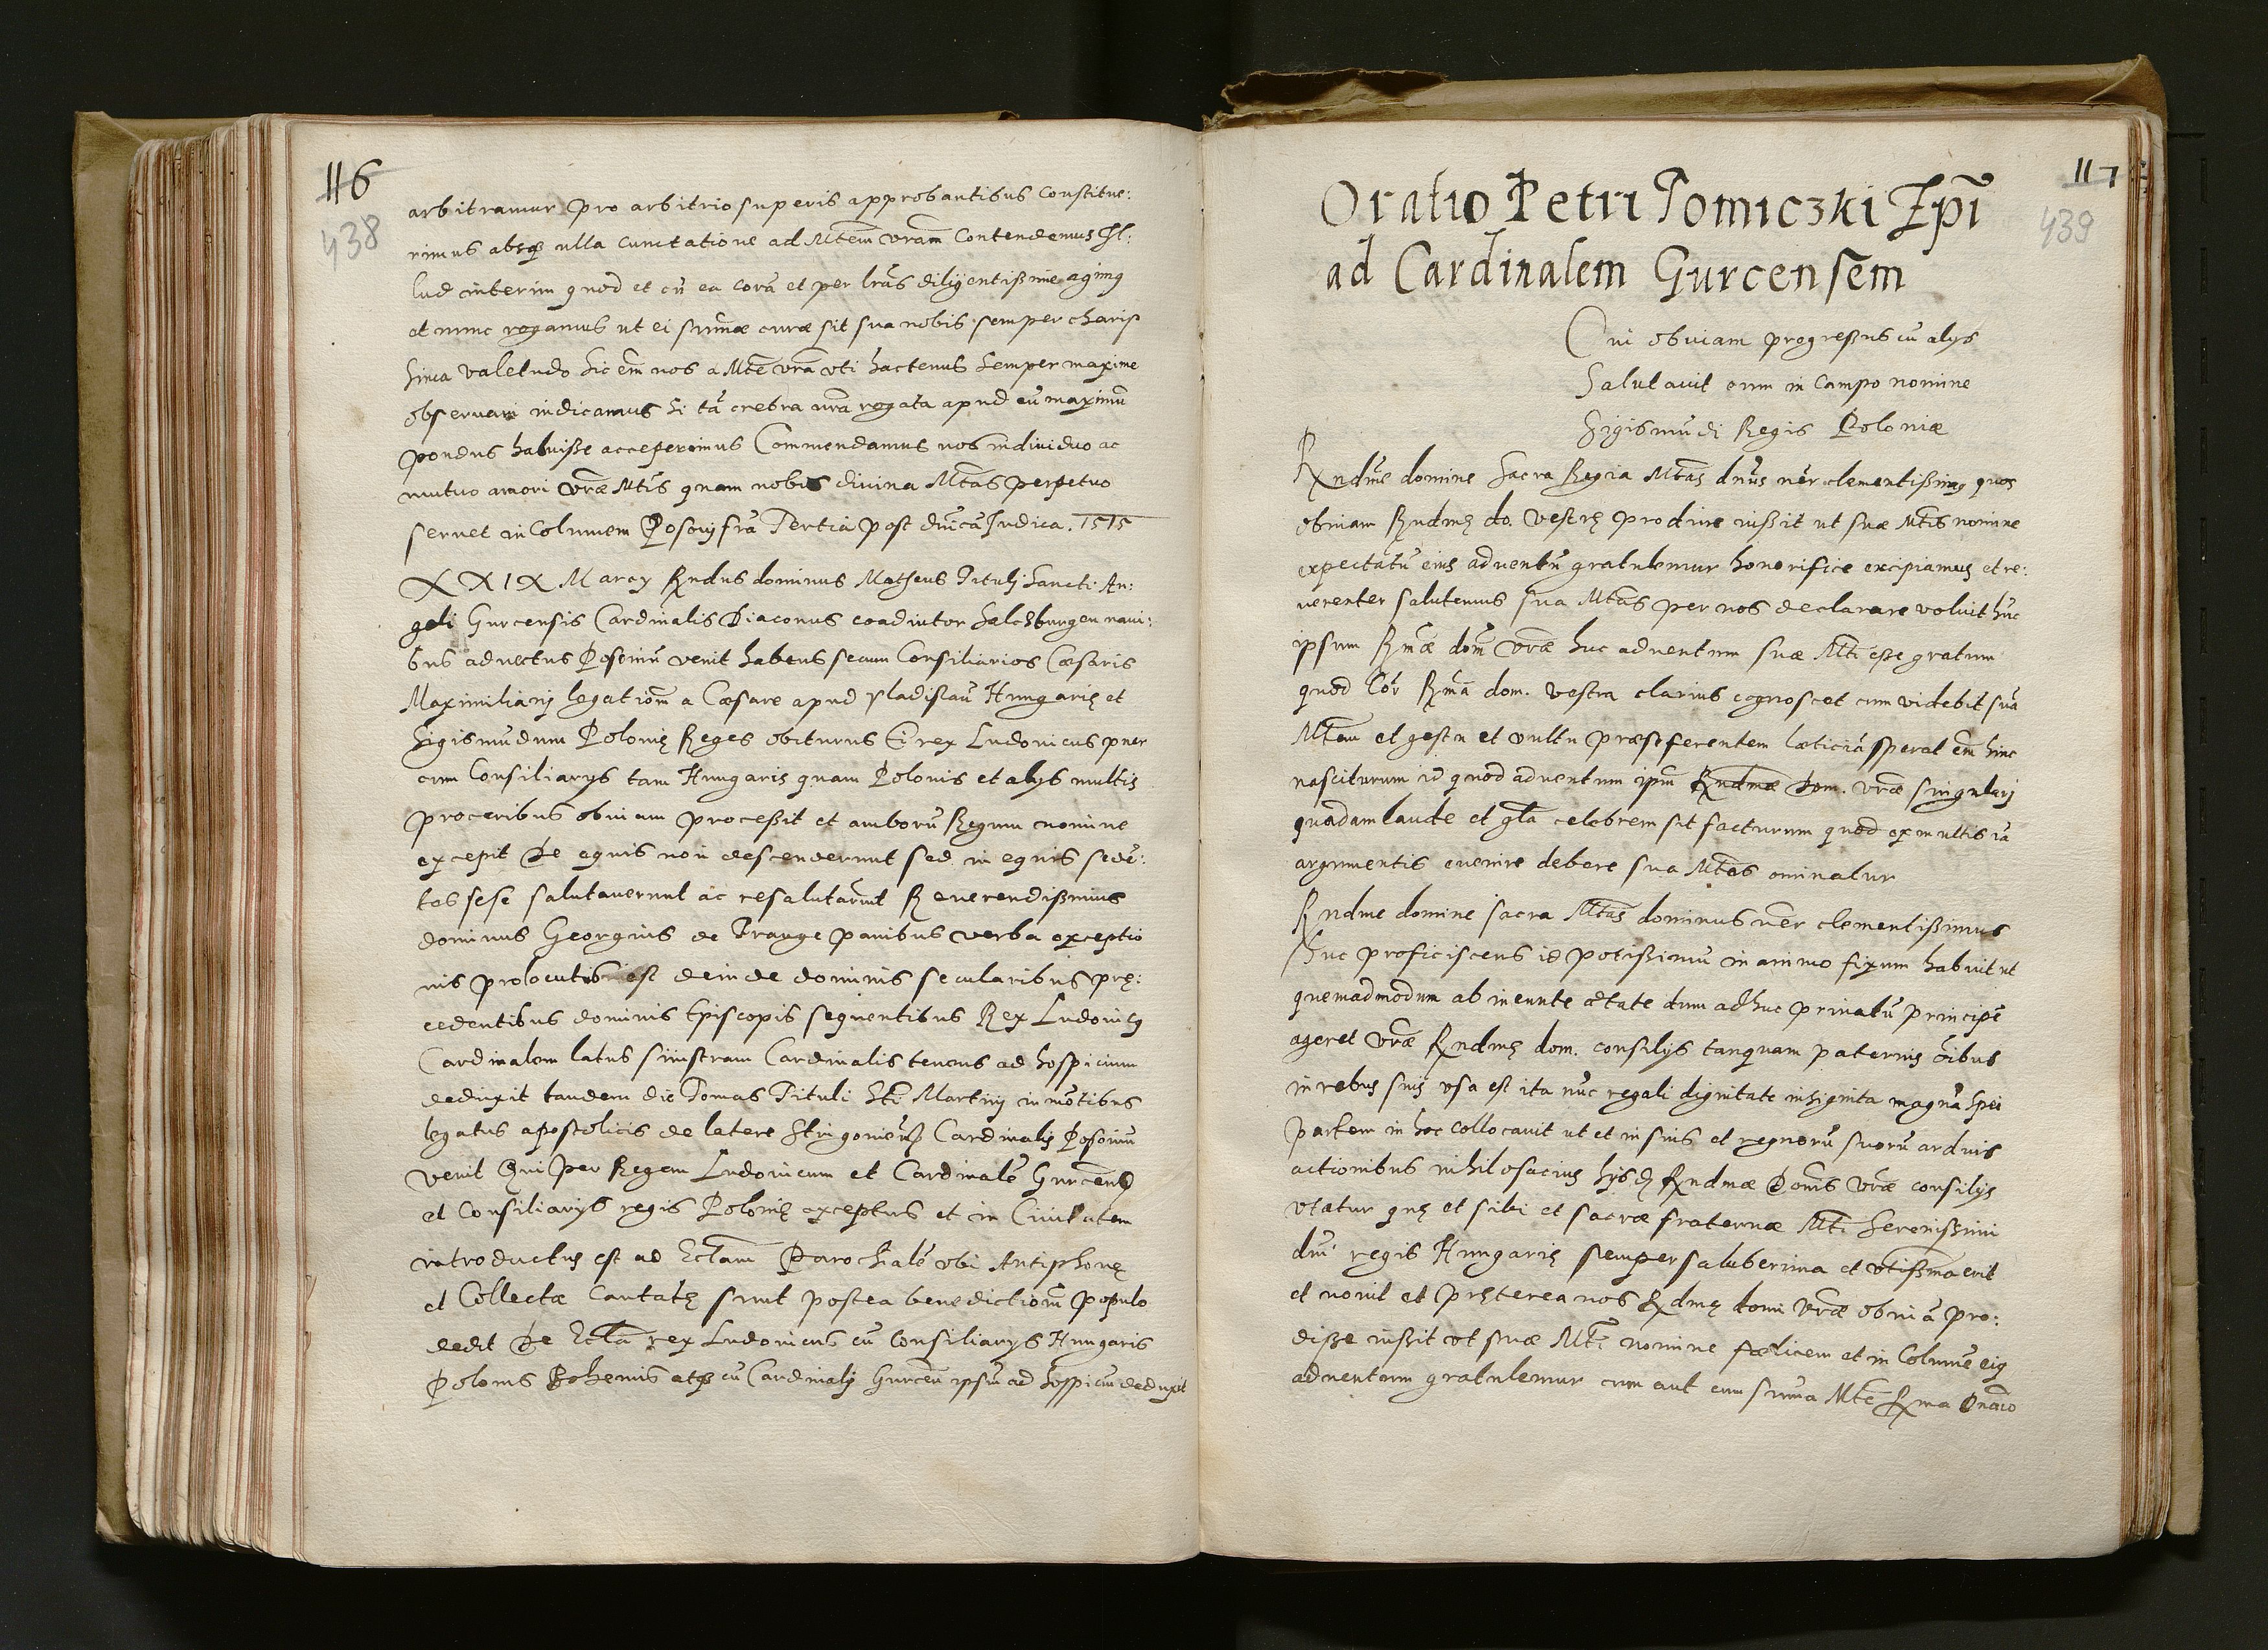 116
438
arbitramur pro arbitrio superis approbantibus Constitue:
rimus absq ulla cunctatione ad Mtem vram Contendemus Il:
lud interim quod et cū ea corā et per lras diligentissime agimq
et nunc rogamus ut ei summæ curæ sit sua nobis semper charis
sima valetudo sic em nos a Mte vra uti hactenus semper maxime
observari indicamus si tā crebra nra rogata apud eū maximū
pondus habuisse acceperimus Commendamus nos individuo ac
mutuo amori vræ Mtis quam nobis divina Mtas perpetuo
servet incolumem Posonij fra Tertia post dnicā Iudica. 1515
XXIX Marcy Rndus dominus Matheus Tituli Sancti An:
geli Gurcensis Cardinalis Diaconus coadiutor Salczburgen navi:
bus advectus Posoniū venit habens secum Consiliarios Cæsaris
Maximiliani legationem a Cæsare apud Vladislaū Hungarię et
Sigismundum Polonię Reges obiturus Ei rex Ludovicus puer
cum Consiliarys tam Hungaris quam Polonis et alys multis
proceribus obviam processit et amborū Regum nomine
excepit De equis non descenderunt sed in equis sedē:
tes sese salutaverunt ac resalutarunt Reverendissimus
dominus Georgius de Prauge panibus verba exceptio
nis prolocutus est deinde dominis secularibus prę:
cedentibus dominis Episcopis sequentibus Rex Ludovicq
Cardinalem latus sinistram Cardinalis tenens ad hospicium
deduxit tandem die Tomas Tituli Sti Martini in mōtibus
legatus apostolicis de latere Strigonienss Cardinalis Posoniū
venit Qui per Regem Ludovicum et Cardinalē Gurcens
et Consiliarys regis Polonię exceptus et in Civitatem
introductus est ad Ectam Parochialē ubi Antiphonę
et Collectæ Cantatę sunt postea benedictiom populo
dedit De Ectā rex Ludovicus cū Consiliarys Hungaris
Polonis Bohemis atq cū Cardinalj Gurcen ipsū ad hospiciū deduxit
117
439
Oratio Petri Tomiczki Epi
ad Cardinalem Gurcensem
Cui obviam progressus cū alys
Salutavit eum in Campo nomine
Sigismūdi Regis Poloniæ
Rndme domine Sacra Regia Mtas dnus nēr clementissimq quos
obviam Rndmę do. vestrę prodire iussit ut suæ Mtis nomine
expectatū eius adventū gratulemur honorifice excipiamus et re:
verenter salutemus sua Mtas per nos declarare voluit hūc
ipsum Rmæ dom vræ huc adventum suæ Mti esse gratum
quod Cōr Rma dom. vestra clarius cognoscet cum videbit suā
Mtem et gestu et vultu præseferentem læticiā sperat em hinc
nasciturum id quod adventum ipsū Rndmæ Dom. vræ singularj
quadam laude et gla celebrem sit facturum quod ex multis iā
argumentis evenire debere sua Mtas ominatur
Rndme domine sacra Mtas dominus nēr clementissimus
huc proficiscens id potissimū in animo fixum habuit ut
quemadmodum ab ineunte ætate dum adhuc privatū principē
ageret vræ Rndmę dom. consilijs tanquam paternis oībus
in rebus suis usa est ita nūc regali dignitate insignita magnā spei
partem in hoc collocavit ut et in suis et regnorū suorū arduis
actionibus nihil osacius hysdē Rndmæ Doms vræ consilijs
utatur quę et sibi et sacræ fraternæ Mti Serenissimi
dni regis Hungarię semper saluberima et utissima erit
et novit et pręterea nos Rdmę domi vræ obviā pro:
disse iussit ut suæ Mti nomine fælicem et in Columē eiq
adventum gratulemur cum aut cum summa Mte Rma Dnaco